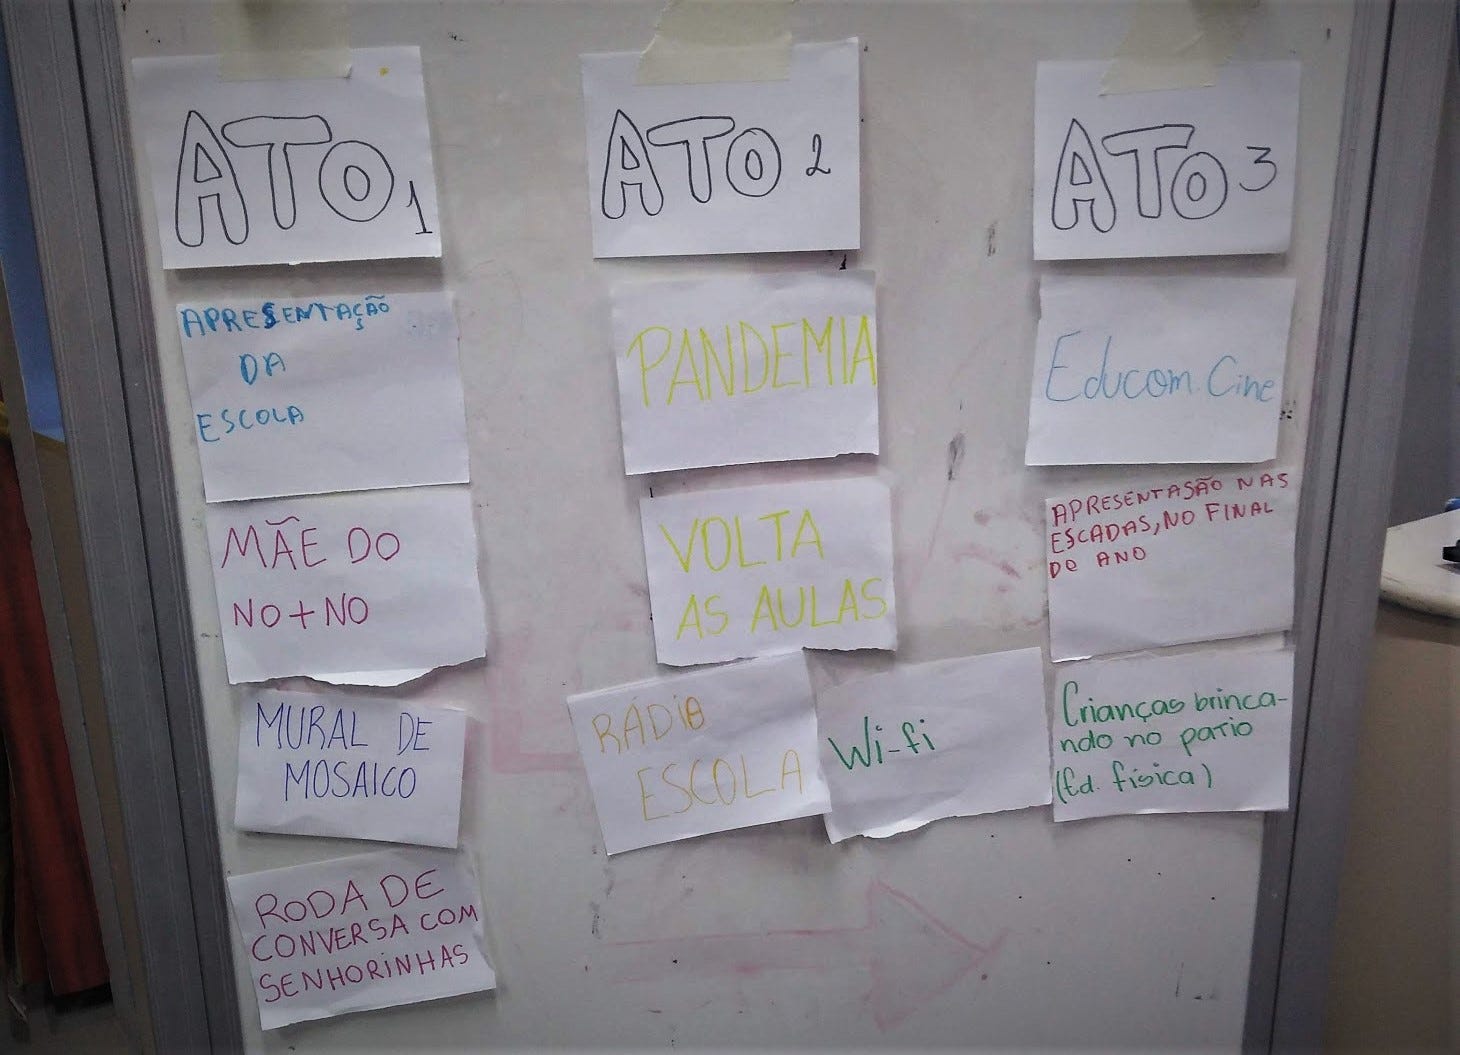 ATO 1
APRESENTAÇÃO
DA
ESCOLA
MÃE DO
NO+NO
MURAL DE
MOSAICO
RODA DE
CONVERSA COM
SENHORINHAS
ATO 2
PANDEMIA
VOLTA
AS AULAS
RÁDIO
ESCOLA
Wi-fi
ATO 3
Educom.Cine
APRESENTASÃO NAS
ESCADAS, NO FINAL
DO ANO
Crianças brinca-
ndo no patio
(Ed. física)